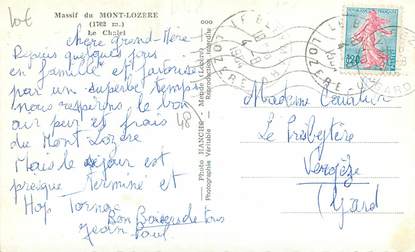 10€
Massif du MONT-LOZERE
(1702 m.)
Le Chalet
chère Grand-Mère
Depuis quelques jours
en famille et favorisés
par un superbe temps
nous respirons le bon
air pur et frais
du Mont Lozère
Mais le séjour est
presque terminé et
Hop
Bon Baisers de tous
Jean Paul
48
Photo HANCHE - Mende (Lozère)
Photographie Véritable - Reproduction interdite
Madame
Le Presbytère
Vergèze
Gard
LOZERE